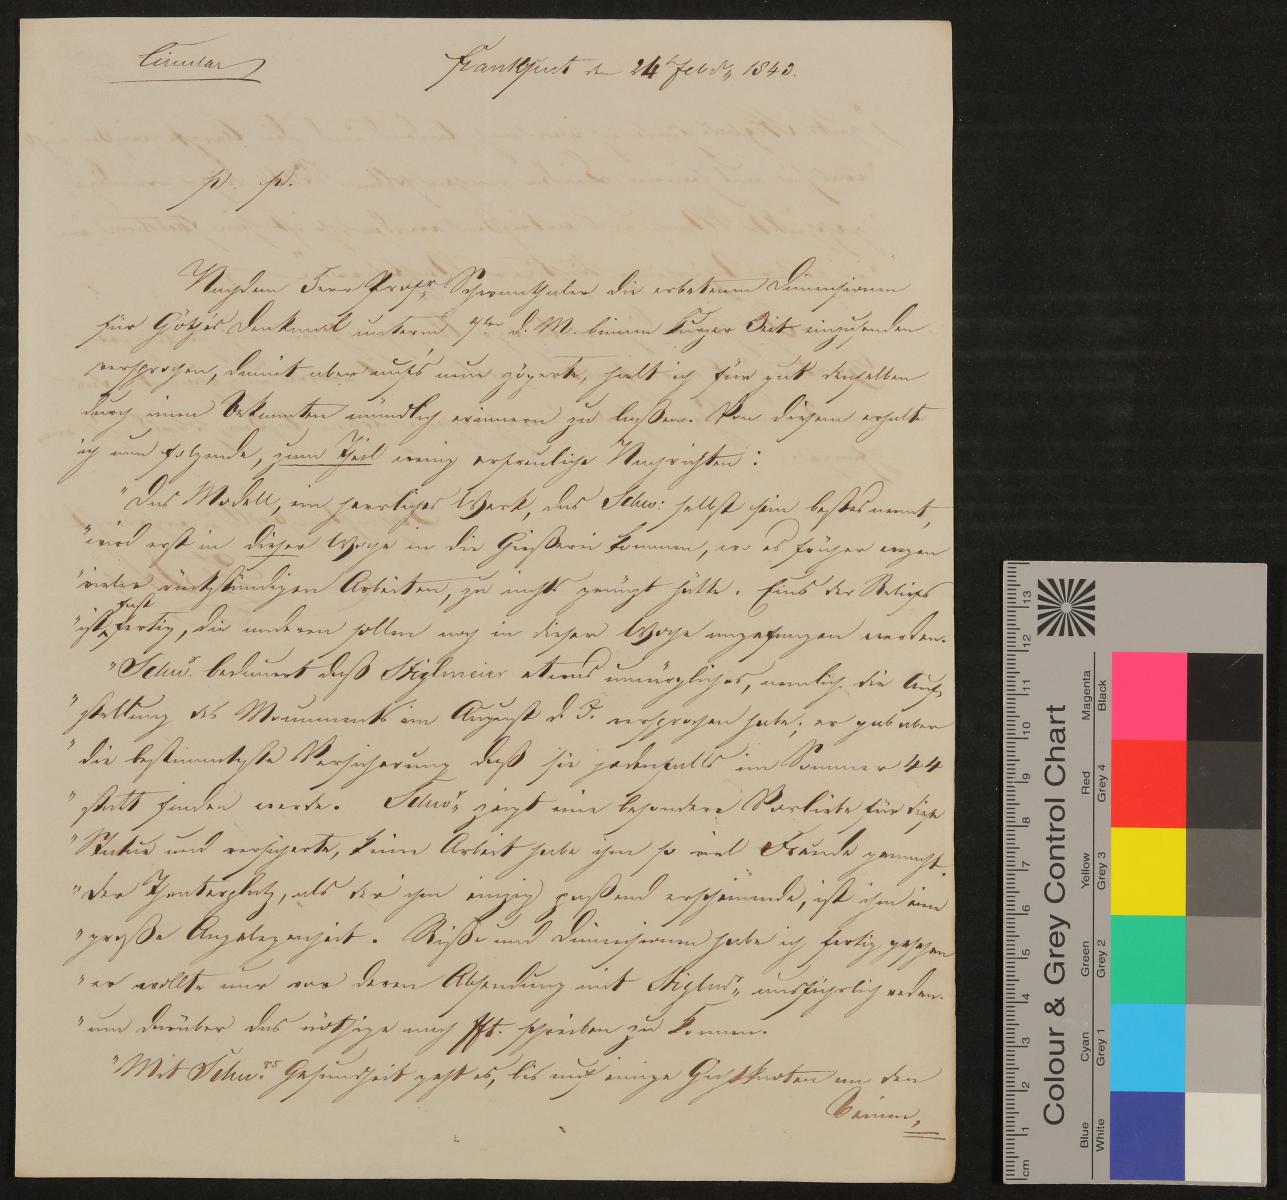 Circular
Frankfurt den 24 Febr. 1843.
p. p.
Nachdem Herr Profr. Schwanthaler die erbetenen Dimensionen
für Göthe's Denkmal unterm 9ten d. M. binnen kurzer Zeit einzusenden
versprochen, damit aber auf's neue zögerte, hielt ich für gut denselben
durch einen Bekannten mündlich erinnern zu laßen. Von diesem erhalte
ich nun folgende, zum Theil wenig erfreuliche Nachrichten:
"Das Modell, ein herrliches Werk, das Schw: selbst sein bestes nennt,
"wird erst in dieser Woche in die Gießerei kommen, wo es früher wegen
"vieler rückständigen Arbeiten, zu nichts genüzt hätte. Eins der Reliefs
"ist fast fertig, die anderen sollen noch in dieser Woche angefangen werden.
"Schwr. bedauert daß Stiglmeier etwas unmögliches, nemlich die Auf-
"stellung des Monuments im August d. J. versprochen habe; er gab aber
"die bestimmteste Versicherung daß sie jedenfalls im Sommer 44
"statt finden werde. Schwr. zeigt eine besondere Vorliebe für diese
"Statue und versicherte, keine Arbeit habe ihm so viel Freude gemacht.
"Der Theaterplatz, als der ihm einzig paßend erscheinende, ist ihm eine
"große Angelegenheit. Riße und Dimensionen habe ich fertig gesehen
"er wollte nur vor deren Absendung mit Stiglmr. ausführlich reden.
"um darüber das nöthige nach Fft. schreiben zu können.
"Mit Schw.rs Gesundheit geht es, bis auf einige Gichtknoten an den
Beinen,
Colour & Grey Control Chart
Blue Cyan Green Yellow Red Magenta
White Grey 1 Grey 2 Grey 3 Grey 4 Black
cm 1 2 3 4 5 6 7 8 9 10 11 12 13